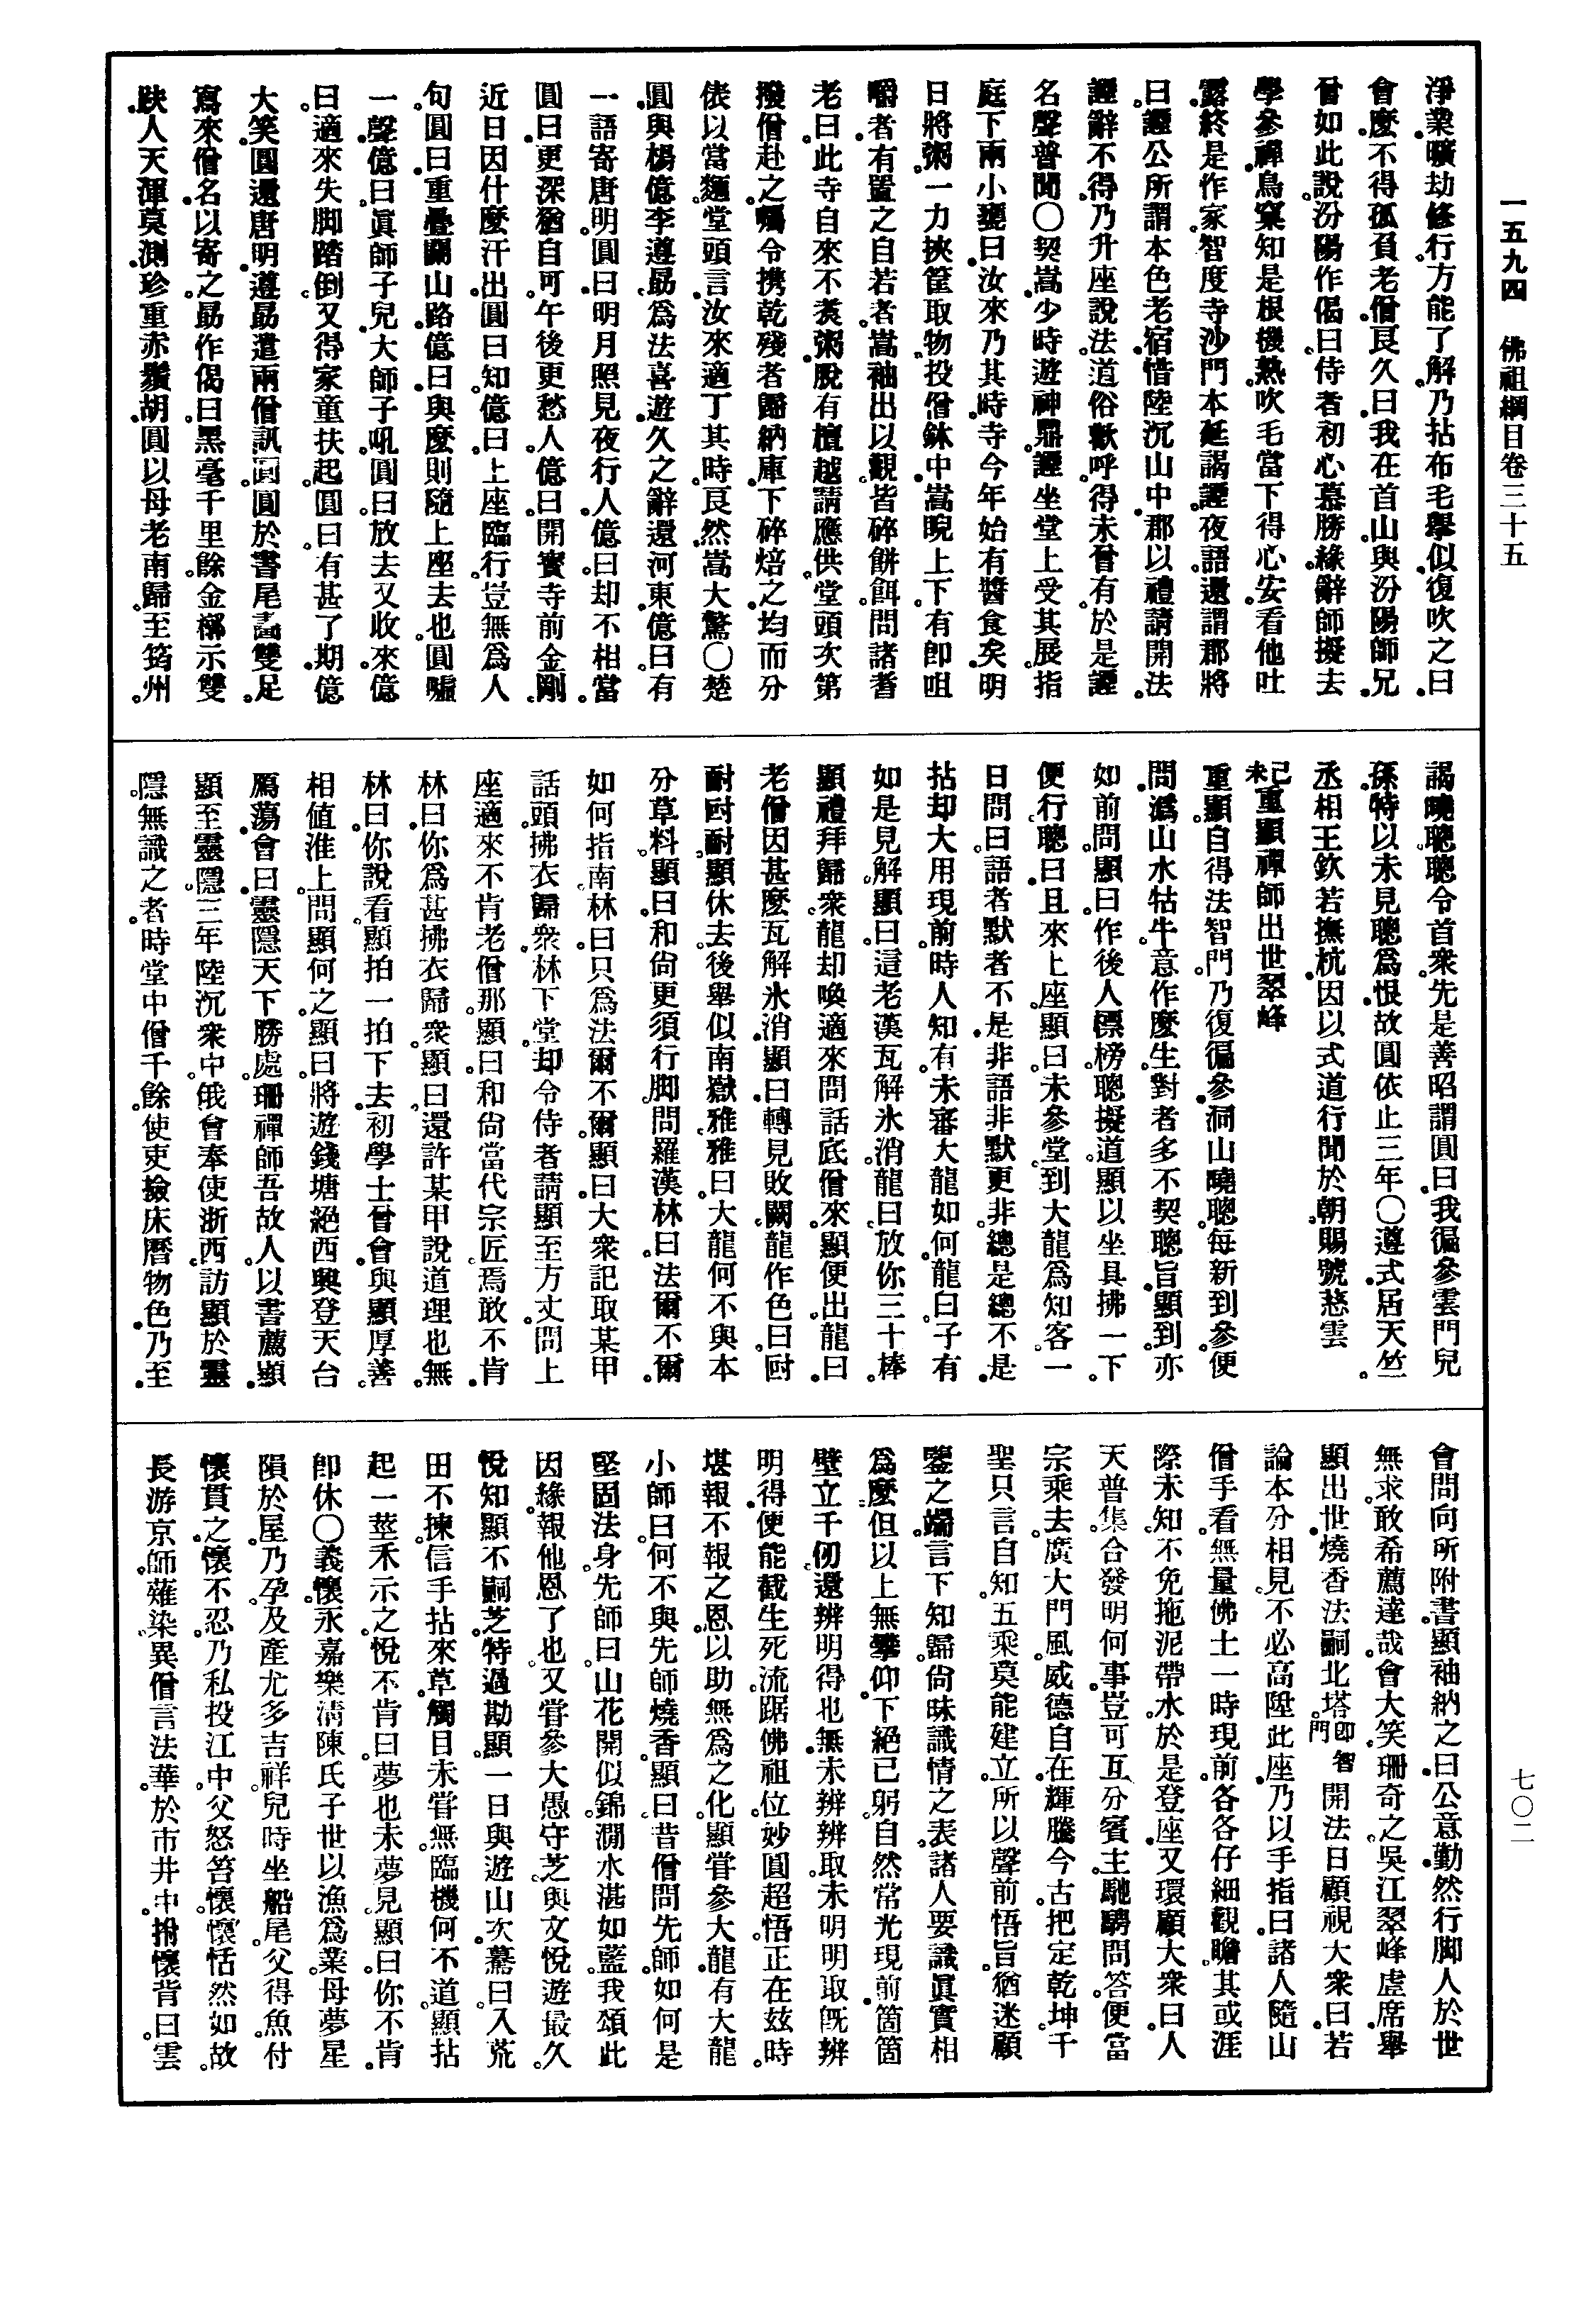 一五九四　佛祖綱目卷三十五
淨業曠劫修行方能了解。乃拈布毛擧似。復吹之曰。
會麼。不得孤負老僧。良久曰。我在首山。與汾陽師兄。
曾如此說。汾陽作偈曰。侍者初心慕勝緣。辭師擬去
學參禪。鳥窠知是根機熟。吹毛當下得心安。看他吐
露。終是作家。智度寺沙門本延謁諲。夜語。還謂郡將
曰。諲公所謂本色老宿。惜陸沉山中。郡以禮請開法。
諲辭不得。乃升座說法。道俗歡呼。得未曾有。於是諲
名聲普聞○契嵩。少時遊神鼎。諲坐堂上受其展。指
庭下兩小甕曰。汝來乃其時。寺今年始有醬食矣。明
日將粥。一力挾筐取物投僧鉢中。嵩睨上下。有卽咀
嚼者。有置之自若者。嵩袖出以觀。皆碎餅餌。問諸耆
老曰。此寺自來不煑粥。脫有檀越請應供。堂頭次第
撥僧赴之。囑令携乾殘者歸納庫。下碎焙之。均而分
俵。以當麵。堂頭言。汝來適丁其時。良然。嵩大驚○楚
圓與楊億李遵勗爲法喜遊。久之辭還河東。億曰。有
一語寄唐明。圓曰。明月照見夜行人。億曰。却不相當。
圓曰。更深猶自可。午後更愁人。億曰。開寳寺前金剛。
近日因什麼汗出。圓曰。知。億曰。上座臨行。豈無爲人
句。圓曰。重疊關山路。億曰。與麼則隨上座去也。圓噓
一聲。億曰。眞師子兒。大師子吼。圓曰。放去又收來。億
曰。適來失脚踏倒。又得家童扶起。圓曰。有甚了期。億
大笑。圓還唐明。遵勗遣兩僧訊圓。圓於書尾畵雙足。
寫來僧名以寄之。勗作偈曰。黑毫千里餘。金槨示雙
趺。人天渾莫測。珍重赤鬚胡。圓以母老南歸。至筠州。
謁曉聰。聰令首衆。先是善昭謂圓曰。我徧參雲門兒
孫。特以未見聰爲恨。故圓依止三年○遵式居天竺。
丞相王欽若撫杭。因以式道行聞於朝。賜號慈雲
己未重顯禪師出世翠峰
重顯。自得法智門。乃復徧參。洞山曉聰。每新到參。便
問。潙山水牯牛。意作麼生。對者多不契聰旨。顯到亦
如前問。顯曰。作後人標榜。聰擬道。顯以坐具拂一下。
便行。聰曰。且來上座。顯曰。未參堂。到大龍爲知客。一
日問曰。語者默者不是。非語非默更非。總是總不是
拈却。大用現前。時人知有。未審大龍如何。龍曰。子有
如是見解。顯曰。這老漢瓦解氷消。龍曰。放你三十棒。
顯禮拜歸衆。龍却喚適來問話底僧來。顯便出。龍曰。
老僧因甚麼瓦解氷消。顯曰。轉見敗闕。龍作色曰。叵
耐叵耐。顯休去。後擧似南嶽雅。雅曰。大龍何不與本
分草料。顯曰。和尙更須行脚。問羅漢林曰。法爾不爾。
如何指南。林曰。只爲法爾不爾。顯曰。大衆記取某甲
話頭。拂衣歸衆。林下堂。却令侍者請顯至方丈。問上
座適來不肯老僧那。顯曰。和尙當代宗匠。焉敢不肯。
林曰。你爲甚拂衣歸衆。顯曰。還許某甲說道理也無。
林曰。你說看。顯拍一拍下去。初學士曾會與顯厚善。
相値淮上。問顯何之。顯曰。將遊錢塘。絕西興登天台
鴈蕩。會曰。靈隱天下勝處。珊禪師吾故人。以書薦顯。
顯至靈隱。三年陸沉衆中。俄會奉使浙西。訪顯於靈
隱。無識之者。時堂中僧千餘。使吏撿床曆物色。乃至。
會問向所附書。顯袖納之曰。公意勤然。行脚人於世
無求。敢希薦達哉。會大笑。珊奇之。吳江翠峰虛席。擧
顯出世。燒香法嗣北塔。卽智門開法日。顧視大衆曰。若
論本分相見。不必高陞此座。乃以手指曰。諸人隨山
僧手看。無量佛土。一時現前。各各仔細觀瞻。其或涯
際未知。不免拖泥帶水。於是登座。又環顧大衆曰。人
天普集。合發明何事。豈可互分賓主。馳騁問答。便當
宗乘去。廣大門風。威德自在。輝騰今古。把定乾坤。千
聖只言自知。五乘莫能建立。所以聲前悟旨。猶迷顧
鑒之端。言下知歸。尙昧識情之表。諸人要識眞實相
爲麼。但以上無攀仰。下絕已躬。自然常光現前。箇箇
壁立千仞。還辨明得也無。未辨辨取。未明明取。旣辨
明得。便能截生死流。踞佛祖位。妙圓超悟。正在玆時。
堪報不報之恩。以助無爲之化。顯甞參大龍。有大龍
小師曰。何不與先師燒香。顯曰。昔僧問先師。如何是
堅固法身。先師曰。山花開似錦。澗水湛如藍。我頌此
因緣。報他恩了也。又甞參大愚守芝。與文悅遊最久。
悅知顯不嗣芝。特過勘顯。一日與遊山次。驀曰。入荒
田不揀。信手拈來草。觸目未甞無。臨機何不道。顯拈
起一莖禾示之。悅不肯曰。夢也未夢見。顯曰。你不肯。
卽休○義懷。永嘉樂淸陳氏子。世以漁爲業。母夢星
隕於屋。乃孕。及產尤多吉祥。兒時坐船尾。父得魚付
懷貫之。懷不忍。乃私投江中。父怒笞懷。懷恬然如故。
長游京師。薙染。異僧言法華。於市井中。拊懷背曰。雲
七〇二